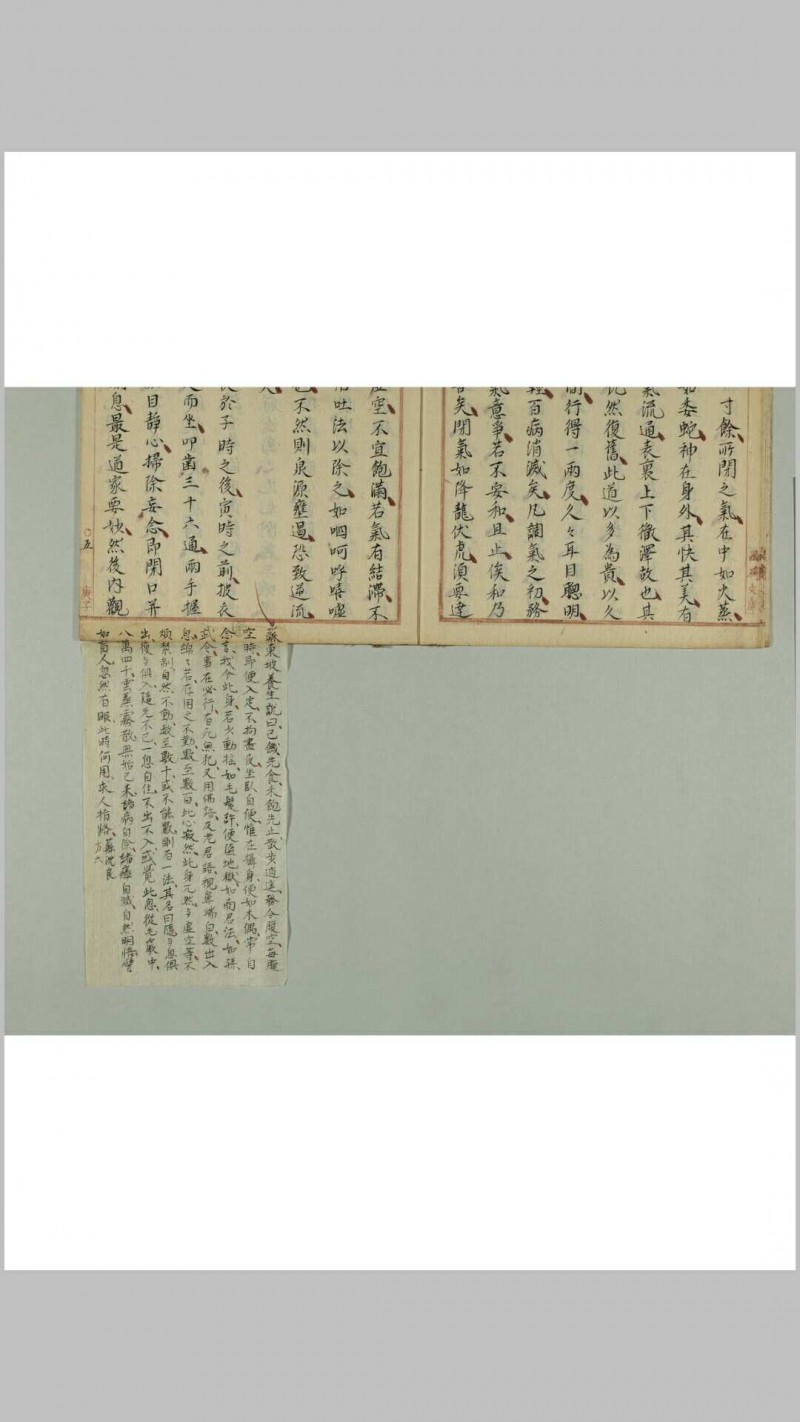 寸餘、所閉之氣在中如火蒸
委蛇、神在身外、其快其美、有
氣流通、表裏上下徹澤故也、其
然復舊、此道以多為貴、以久
行得一兩度、久々耳目聰明、
百病消滅矣、凡調氣之初務
氣意爭、若不安和且止、俟和乃
矣、閉氣如降龍伏虎、須要達
空、不宜飽滿、若氣有結滯、不
吐法以除之、如呬呵呼嘻噓
不然則泉源壅遏、恐致逆流、
於子時之後、寅時之前、披衣
而坐、叩齒三十六通、兩手握
目靜心、掃除妄念、即閉口并
息、最是道家要妙、然後內觀
五
蘇東坡養生說曰、已饑先食、未飽先止、散步逍遙、務令腹空、每腹
空時、即便入定、不拘晝夜、坐臥自便、惟在攝身、使如木偶、常自
念言、我今此身、若少動搖、如毛髮許、便墮地獄、如商君法、如孫
武令、事在必行、有死無犯、又用佛語、及老君語、視鼻端白、數出入
息、綿々若存、用之不勤、數至數百、此心寂然、此身兀然、与虛空等、不
煩禁制、自然不動、數至數千、或不能數、則有一法、其名曰隨、与息俱
出、復与俱入、隨之不已、一息自住、不出不入、或覺此息、從毛竅中、
八萬四千、雲蒸霧散、無始已來、諸病自除、諸障自滅、自然明悟、譬
如盲人、忽然有眼、此時何用、求人指路、蘇沈良
方六